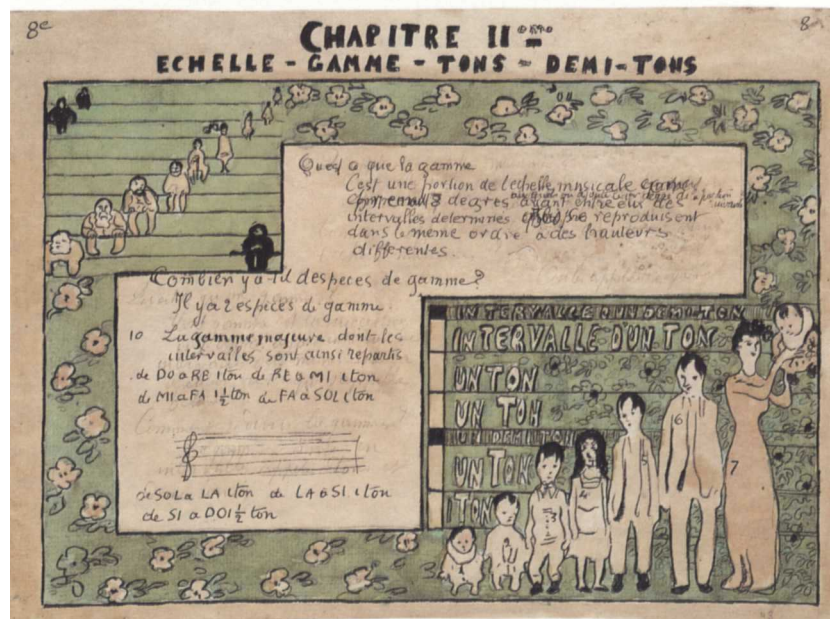 8e
8
CHAPITRE II
ECHELLE - GAMME - TONS - DEMI-TONS
Quest a que la gamme
C'est une portion de lechelle musicale
comprend 8 degres ayant entre eux des
intervalles determines se reproduisent
dans le meme ordre a des hauteurs
differentes.
Combien y a til despeces de gamme?
Il y a 2 especes de gamme
1o La gamme majeure dont les
intervalles sont ainsi repartis
de DO a RE 1 ton de RE a MI 1 ton
de MI a FA 1½ ton de FA a SOL 1 ton
de SOL a LA 1 ton de LA a SI 1 ton
de SI a DO 1½ ton
INTERVALLE D'UN DEMI-TON
INTERVALLE D'UN TON
UN TON
UN TON
UN DEMI TON
UN TON
1 TON
3
4
5
6
7
8